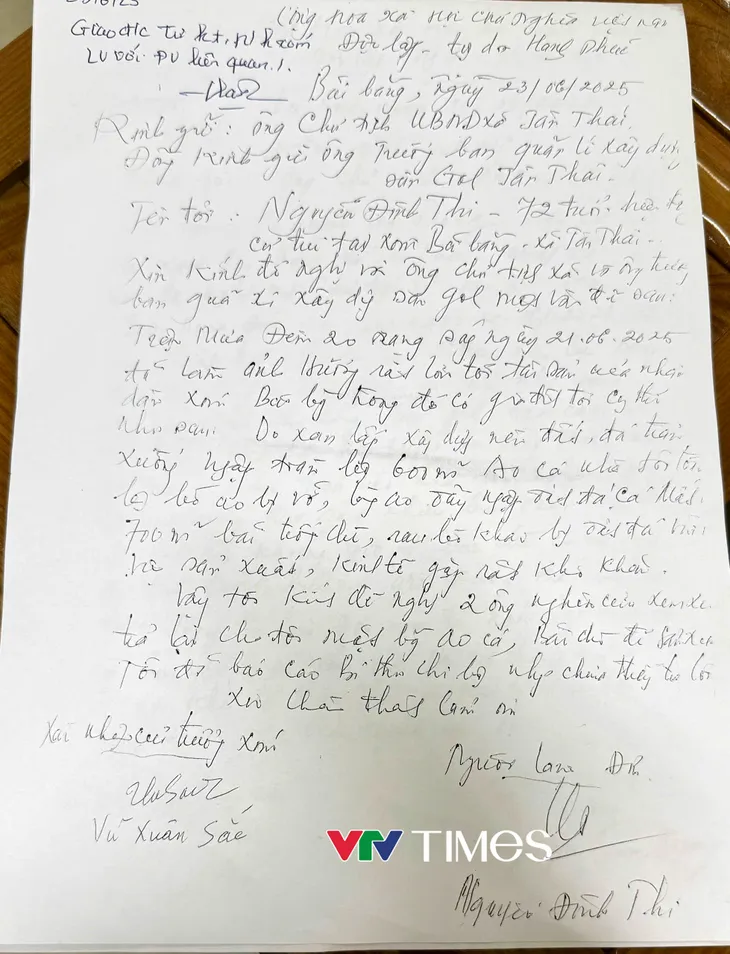 Cộng hòa xã hội chủ nghĩa việt nam
Độc lập - tự do Hạnh Phúc
Giao đ/c
LV với ĐV liên quan./.
Bãi bằng, ngày 23/06/2025
Kính gửi: Ông Chủ tịch UBND xã Tân Thái.
Đồng Kính gửi ông Trưởng ban quản lí xây dựng
sân Gol Tân Thái.
Tên tôi: Nguyễn Đình Thi - 72 tuổi. hiện
cư trú tại xóm Bãi bằng - xã Tân Thái
Xin kính đề nghị ông chủ tịch xã và ông trưởng
ban quả lí xây dựng sân gol một vấn đề sau:
Trận Mưa Đêm 20 rạng ngày 21.06.2025
đã làm ảnh Hưởng rất lớn tới tài sản của nhân
dân xóm Bãi bằng trong đó có gia đình tôi cụ thể
Như sau: Do san lấp xây dựng nên đất, đá tràn
xuống 600m² Ao cá nhà tôi
bờ ao bị vỡ, ao đầy đất đá cá Mất.
700m² bãi trồng bị đất đá
sản xuất, kinh tế gặp rất khó khăn.
Vậy tôi kính đề nghị 2 ông nghiên cứu xem xét
trả lại cho tôi mặt bằng ao cá, Bãi để sản xuất
Tôi đã báo cáo Bí thư chi bộ chưa thấy trả lời
Xin chân thành cảm ơn
Xác nhận của trưởng xóm
Người làm Đơn
Vũ Xuân Sắc
VTV TIMES
Nguyễn Đình Thi